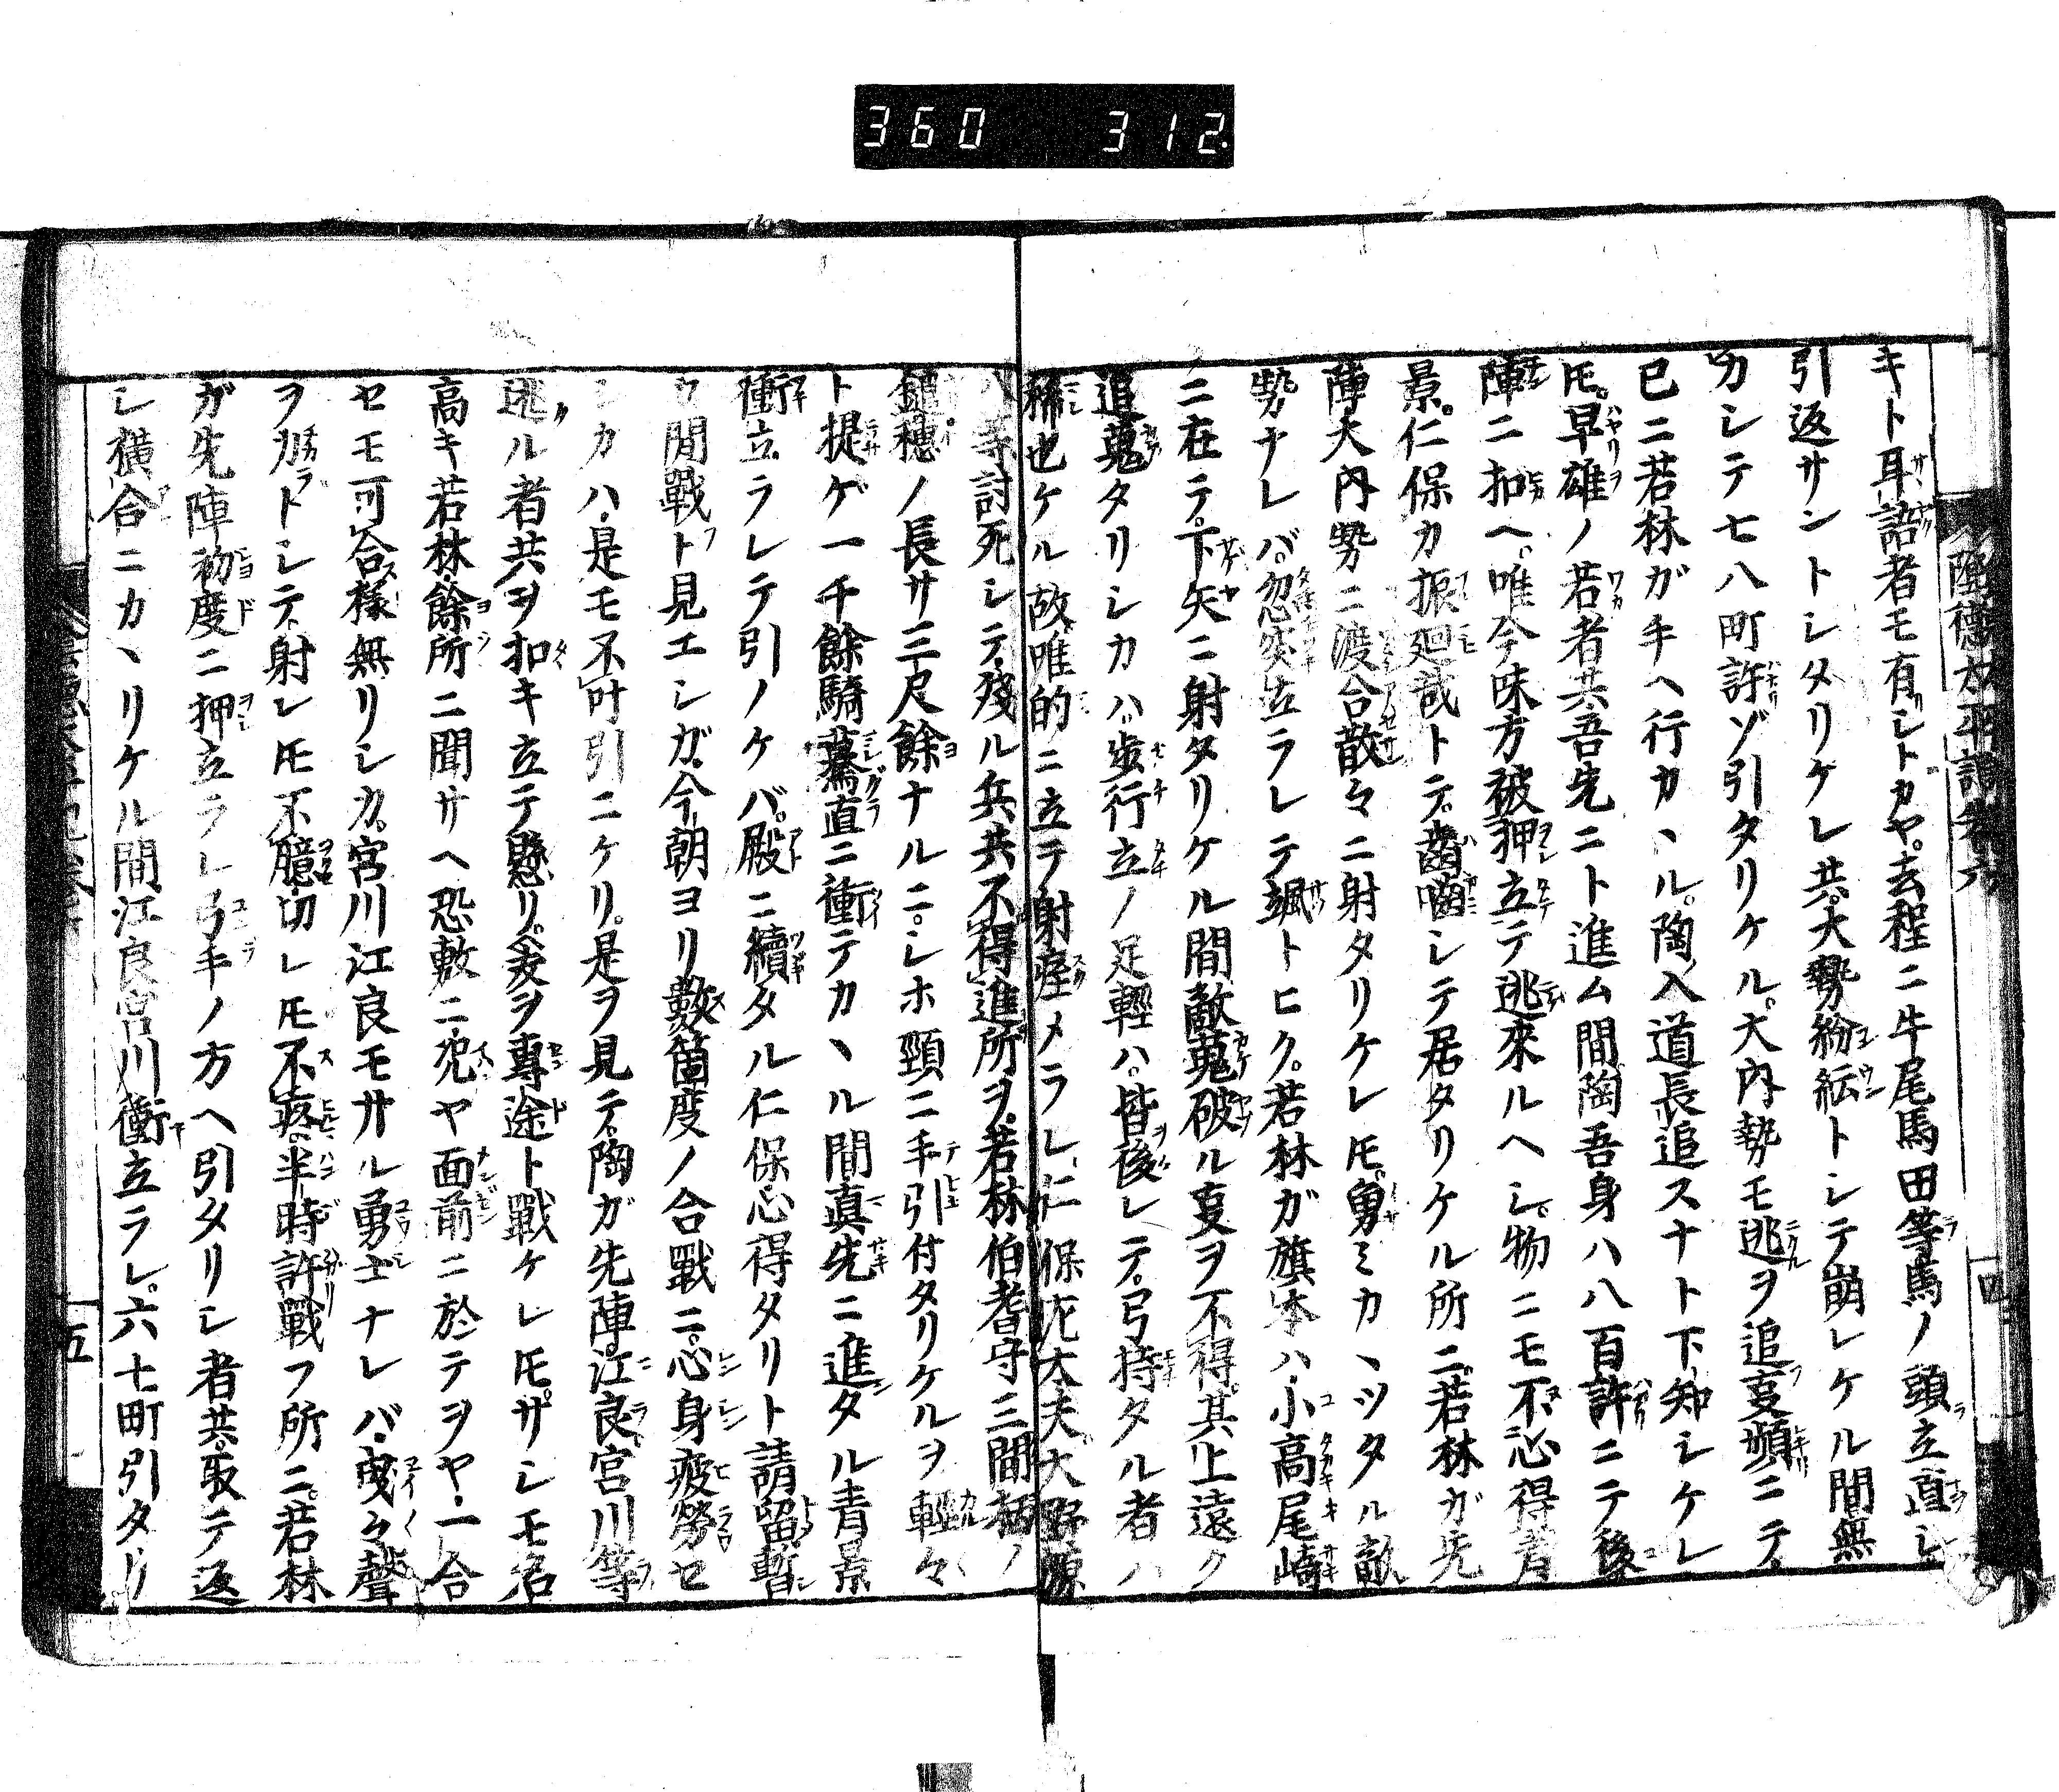 360 312
陰徳太平記卷六
四
キト耳語者モ有シトカヤ。去程ニ牛尾馬田等馬ノ頭立直シ
引返サントシタリケレ共。大勢紛紜トシテ崩レケル間無
力シテ七八町許ゾ引タリケル。大内勢モ逃ヲ追叓頻ニテ。
已ニ若林ガ手ヘ行カヽル。陶入道長追スナト下知シケレ
𪜈。早雄ノ若者共吾先ニト進ム間陶吾身ハ八百許ニテ後
陣ニ扣ヘ。唯今味方被押立テ逃來ルヘシ。物ニモ不心得青
景。仁保カ振廻哉トテ。齒嚙シテ居タリケル所ニ。若林ガ先
陣大内勢ニ渡合散々ニ射タリケレ𪜈。勇ミカヽツタル敵
勢ナレバ。忽突立ラレテ颯トヒク。若林ガ旗本ハ小高尾崎
ニ在テ。下矢ニ射タリケル間敵蒐破ル叓ヲ不得。其上遠ク
追蒐タリシカハ歩行立ノ足輕ハ。皆後レテ。弓持タル者ハ
稀也ケル故。唯的ニ立テ射痓メラレ仁保尤太夫大野源
八等討死シテ殘ル兵共不得進所ヲ。若林伯耆守三間柄ノ
鎗穂ノ長サ三尺餘ナルニ。シホ頸ニ手引付タリケルヲ輕々
ト提ゲ一千餘騎驀直ニ衝テカヽル間真先ニ進タル青景
衝立ラレテ引ノケバ。殿ニ續タル仁保心得タリト請留暫
ク間戰ト見エシガ。今朝ヨリ數箇度ノ合戰ニ。心身疲勞セ
シカハ是モ不叶引ニケリ。是ヲ見テ陶ガ先陣江良宮川等
逃ル者共ヲ扣キ立テ懸リ。爰ヲ專途ト戰ケレ𪜈。サシモ名
高キ若林餘所ニ聞サヘ恐敷ニ况ヤ面前ニ於テヲヤ一合
セモ可合樣無リシカ。宮川江良モサル勇士ナレバ曵々聲
ヲ力ラトシテ射レ𪜈不臆切レ𪜈不疼半時許戰フ所ニ。若林
ガ先陣初度ニ押立ラレ弓手ノ方ヘ引タリシ者共取テ返
シ横合ニカヽリケル間江良宮川衝立ラレ。六七町引タリ
五